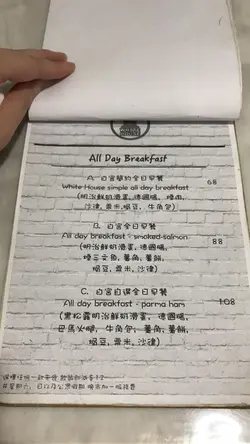 All Day Breakfast
A. 白宮簡約全日早餐 68
White House simple all day breakfast
(明治鮮奶滑蛋, 德國腸, 煙肉,
沙律, 粟米, 焗豆, 牛角包)
B. 白宮全日早餐
All day breakfast - smoked-salmon 88
(明治鮮奶滑蛋, 德國腸,
煙三文魚, 薯角, 薯餅,
焗豆, 粟米, 沙律)
C. 白宮自選全日早餐
All day breakfast - parma ham 108
(黑松露明治鮮奶滑蛋, 德國腸,
巴馬火腿, 牛角包, 薯角, 薯餅,
焗豆, 粟米, 沙律)